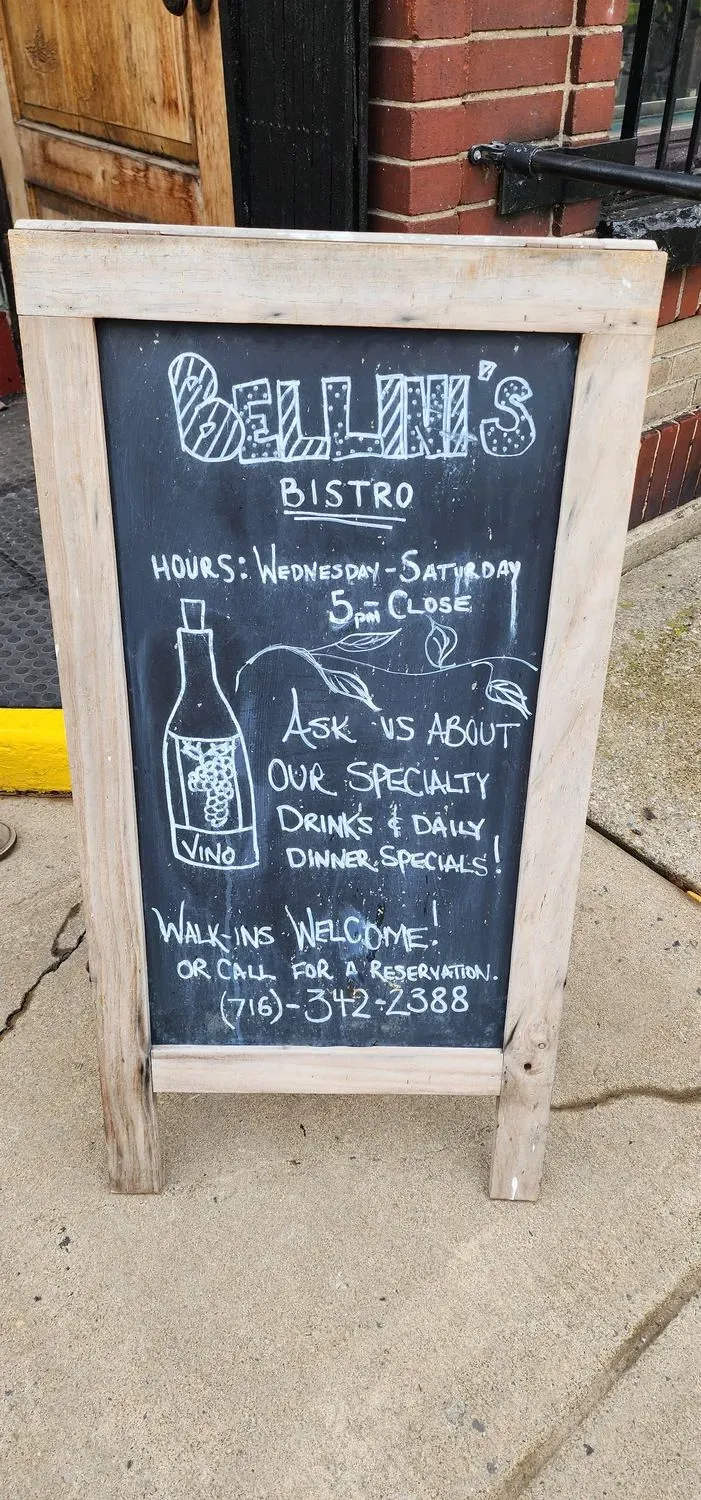 BELLINI'S
BISTRO
HOURS: WEDNESDAY-SATURDAY
5pm-CLOSE
ASK US ABOUT
OUR SPECIALTY
DRINKS & DAILY
DINNER SPECIALS!
VINO
WALK-INS WELCOME!
OR CALL FOR A RESERVATION.
(716)-342-2388